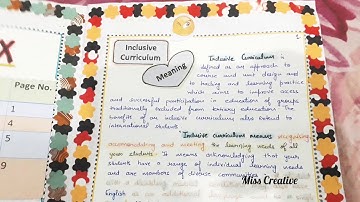 X
Page No.
1
4
5
9
1
Inclusive
Curriculum
Meaning
Inclusive Curriculum is
defined as an approach to
course and unit design and
to teaching and learning practice
which aims to improve access
and successful participation in education of groups
traditionally excluded from tertiary education. The
benefits of an inclusive curriculum also extend to
international students.
Inclusive curriculum means recognising
accommodating and meeting the learning needs of all
your students. It means acknowledging that your
students have a range of individual learning needs
and are members of diverse communities.
a disabling medical
English as
Miss Creative